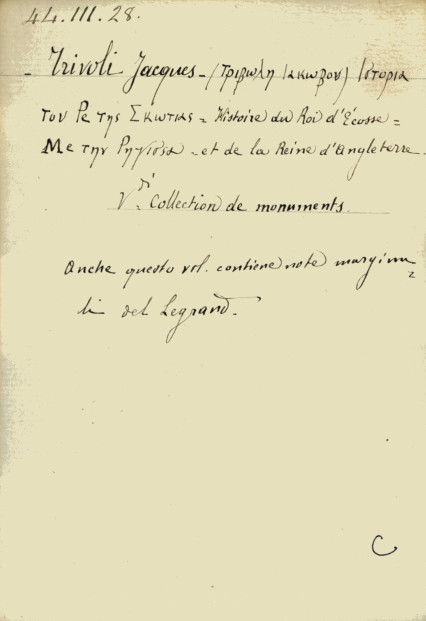 44.III.28.
- Trivoli Jacques - (Τριβωλη Ιακωβου) Ιστορια
του Ρε της Σκωτιας = Histoire du Roi d'Écosse =
Με την Ρηγισσα - et de la Reine d'Angleterre.
V. di Collection de monuments
Anche questo vol. contiene note margina=
li del Legrand.
C